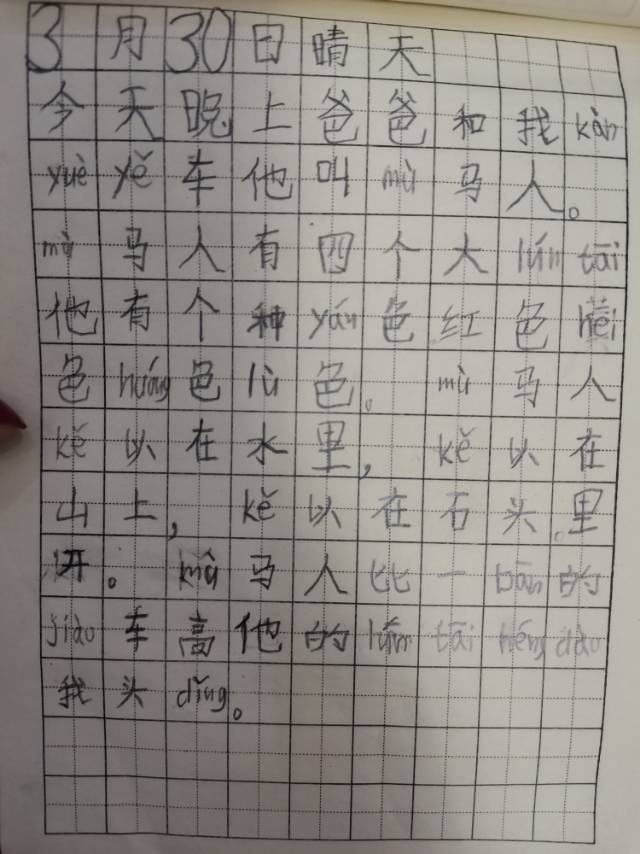 3月30日晴天
今天晚上爸爸和我kàn
yuè yě车他叫mù马人。
mù马人有四个大lún tāi
他有个种yán色红色hēi
色huáng色lǜ色。mù马人
kě以在水里，kě以在
山上，kě以在石头里
开。mù马人比一bān的
jiào车高他的lún tāi néng dào
我头dǐng。